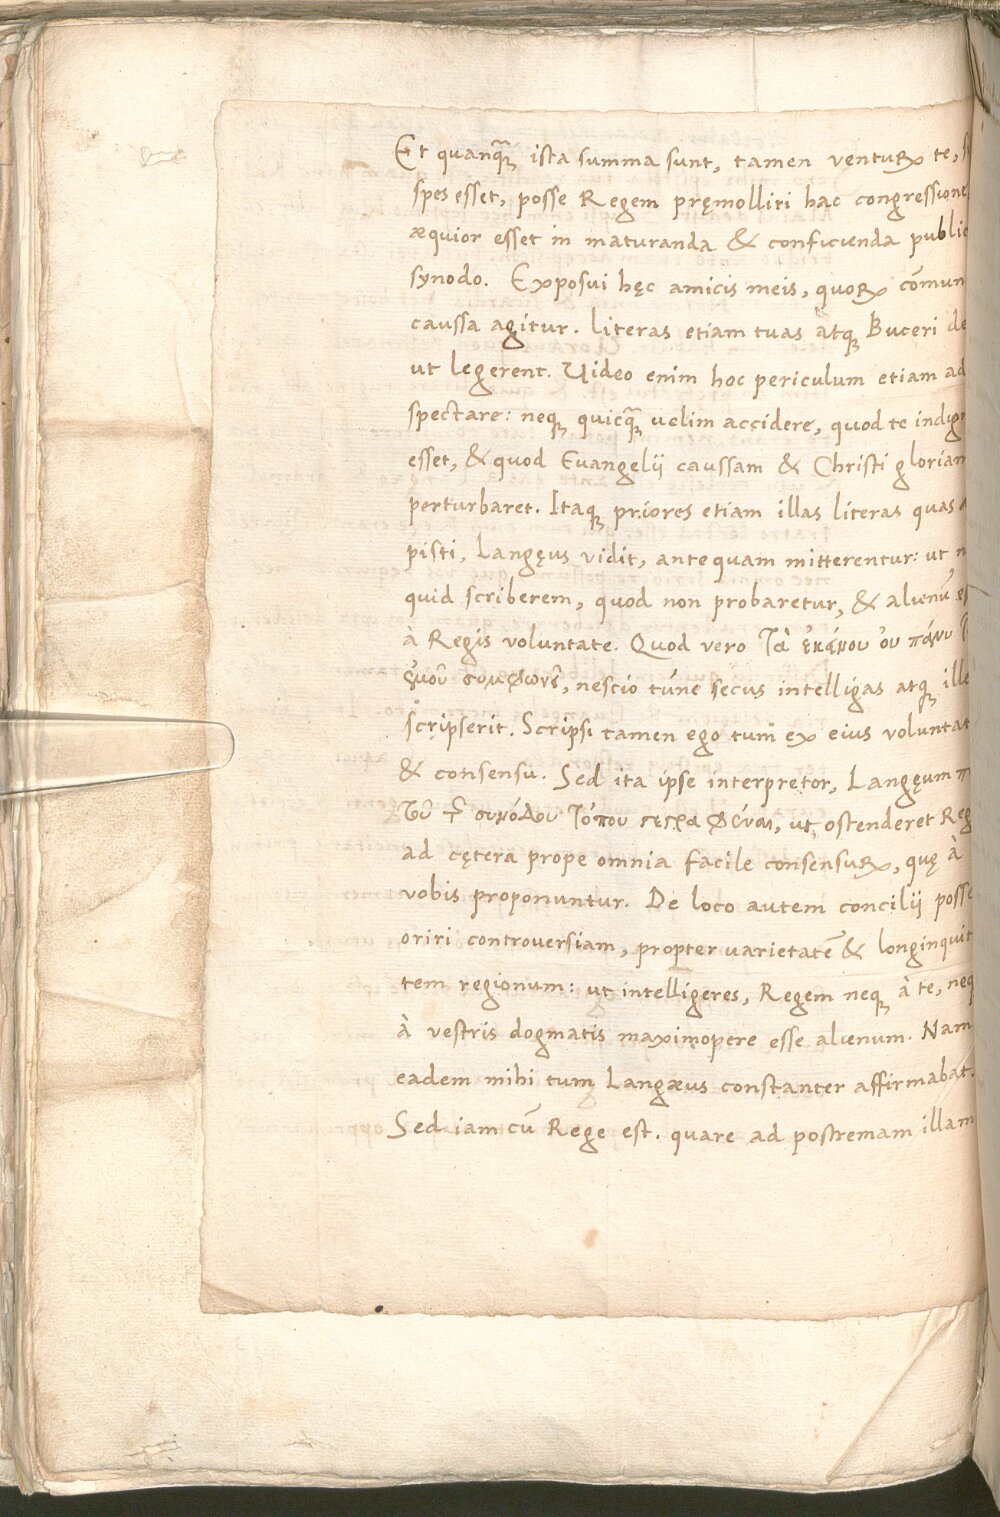 Et quanq̃ꝫ ista summa sunt, tamen ventuꝝ te,
spes esset, posse Regem pręmolliri hac congressione
æquior esset in maturanda & conficienda public
synodo. Exposui hęc amicis meis, quoꝝ cōmun
caussa agitur. literas etiam tuas atqꝫ Buceri de
ut legerent. Uideo enim hoc periculum etiam ad
spectare: neqꝫ quicq̃ꝫ uelim accidere, quod te indign
esset, & quod Euangelij caussam & Christi gloriam
perturbaret. Itaqꝫ priores etiam illas literas quas
pisti, Langęus vidit, antequam mitterentur: ut n
quid scriberem, quod non probaretur, & alienū es
à Regis voluntate. Quod vero τὰ ἐκείνου οὐ πάνυ
ἐμοῦ συμφωνεῖ, nescio túne secus intelligas atqꝫ ille
scripserit. Scripsi tamen ego tum ex eius voluntat
& consensu. Sed ita ipse interpretor, Langęum π
τοῦ τῆς συνόδου τόπου γεγραφέναι, ut ostenderet Reg
ad cętera prope omnia facile consensuꝝ, quę à
vobis proponuntur. De loco autem concilij posse
oriri controversiam, propter varietatē & longinquit
tem regionum: ut intelligeres, Regem neqꝫ à te, neq
à vestris dogmatis maximopere esse alienum. Nam
eadem mihi tum Langæus constanter affirmabat.
Sed iam cū Rege est. quare ad postremam illam